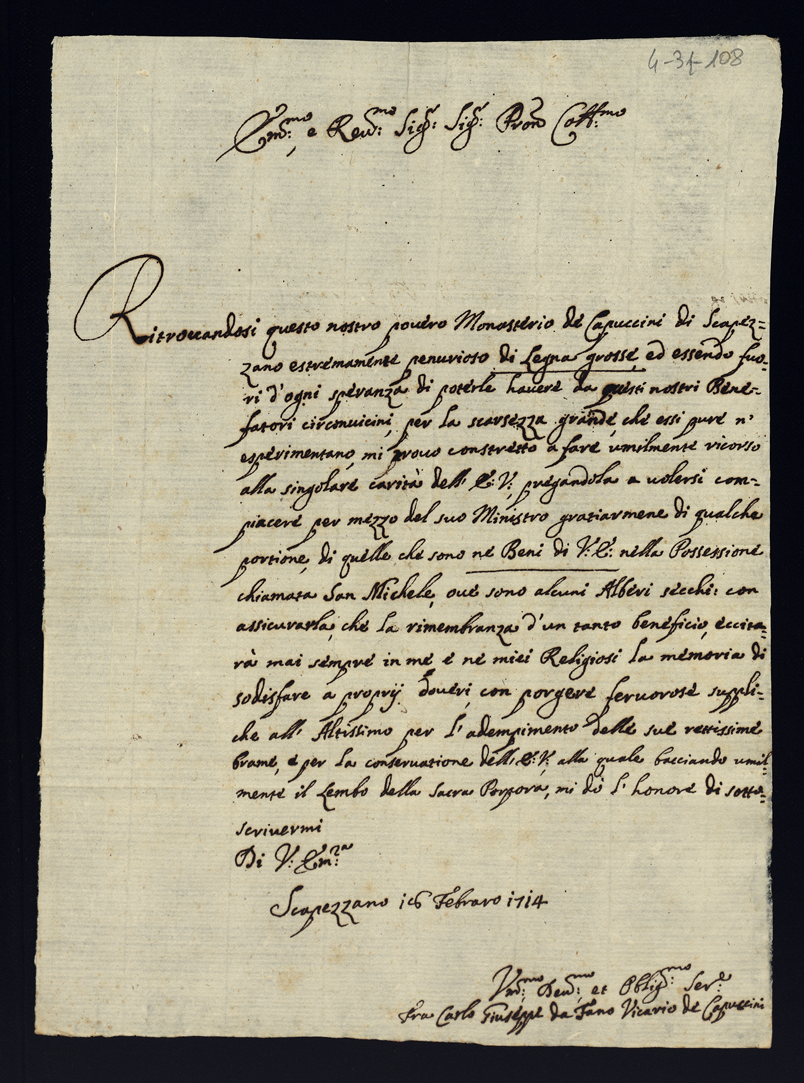 4-34-108
Em:mo e Reu:mo Sig:r Sig:r Pron Coll:mo
Ritrouandosi questo nostro pouero Monasterio de Capuccini di Scapez=
zano estremamente penurioso di Legna grosse, ed essendo fuo=
ri d'ogni speranza di poterle hauere da questi nostri Bene=
fatori circonuicini, per la scarsezza grande, che essi pure n'
esperimentano, mi trouo constretto a fare umilmente ricorso
alla singolare carità dell' E: V:, pregandola a uolersi com=
piacere per mezzo del suo Ministro gratiarmene di qualche
portione, di quelle che sono ne Beni di V: E: nella Possessione
chiamata San Michele, oue sono alcuni Alberi secchi: con
assicurarla, che la rimembranza d'un tanto beneficio, eccita=
rà mai sempre in me e ne miei Religiosi la memoria di
sodisfare a proprij doueri, con porgere feruorose suppli=
che all' Altissimo per l'adempimento delle sue rettissime
brame, e per la conseruatione dell' E: V: alla quale bacciando umil=
mente il Lembo della Sacra Porpora, mi dò l'honore di sotto=
scriuermi
Di V: Em:za
Scapezzano 16 Febraro 1714
Um:mo Deu:mo et Oblig:mo Ser:e
Fra Carlo Giuseppe da Fano Vicario de Capuccini